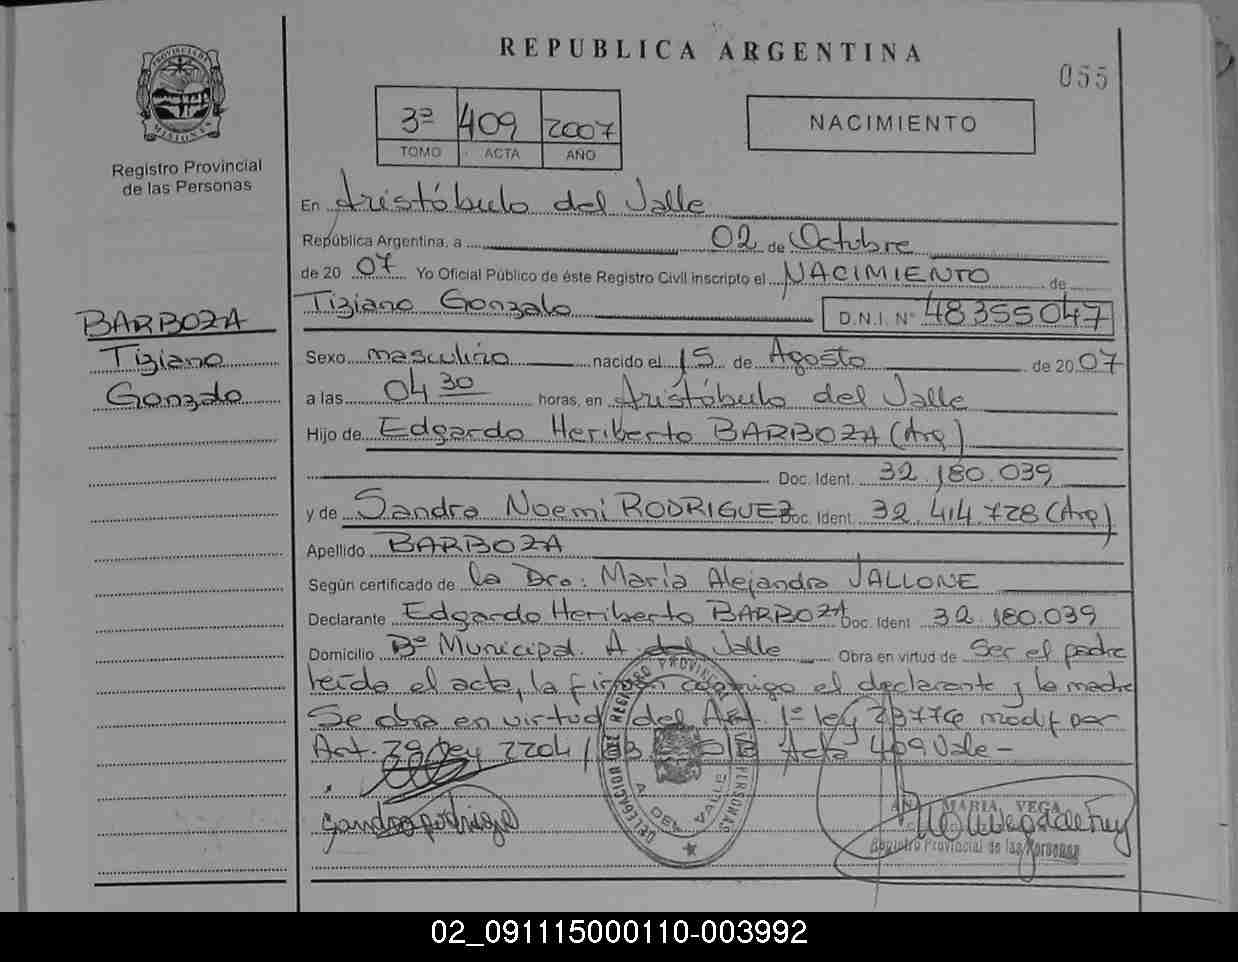 REPUBLICA ARGENTINA
055
PROVINCIA DE MISIONES
Registro Provincial
de las Personas
3ª 409 2007
TOMO ACTA AÑO
NACIMIENTO
En Aristóbulo del Valle
República Argentina, a 02 de Octubre
de 20 07 Yo Oficial Público de éste Registro Civil inscripto el NACIMIENTO de
Tiziano Gonzalo D.N.I. N° 48355047
BARBOZA
Tiziano
Gonzalo
Sexo masculino nacido el 15 de Agosto de 20 07
a las 04 30 horas, en Aristóbulo del Valle
Hijo de Edgardo Heriberto BARBOZA (Arg)
Doc. Ident. 32.180.039
y de Sandra Noemi RODRIGUEZ Doc. Ident. 32.414.728 (Arg)
Apellido BARBOZA
Según certificado de la Dra: María Alejandra VALLONE
Declarante Edgardo Heriberto BARBOZA Doc. Ident 32.180.039
Domicilio Bº Municipal. A. del Valle Obra en virtud de Ser el padre
leída el acta, la firman conmigo el declarante y la madre
Se obra en virtud del Art. 1º ley 23776 modif por
Art. 29 ley 2204 / Acta 409 Vale -
Sandra Rodrigez
DELEGACION DE REGISTRO PROVINCIAL DE LAS PERSONAS
A. DEL VALLE
ANA MARIA VEGA
Registro Provincial de las Personas
02_091115000110-003992